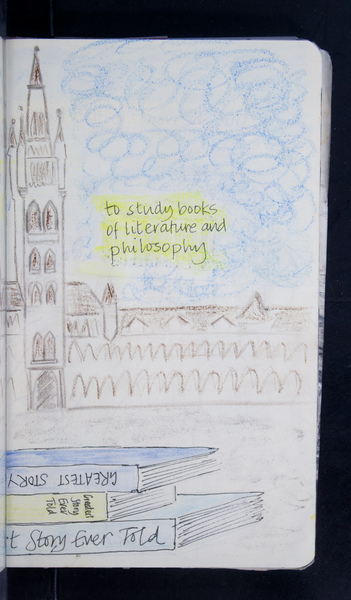 to study books
of literature and
philosophy
GREATEST STORY
Greatest
Story
Ever
Told
t Story Ever Told